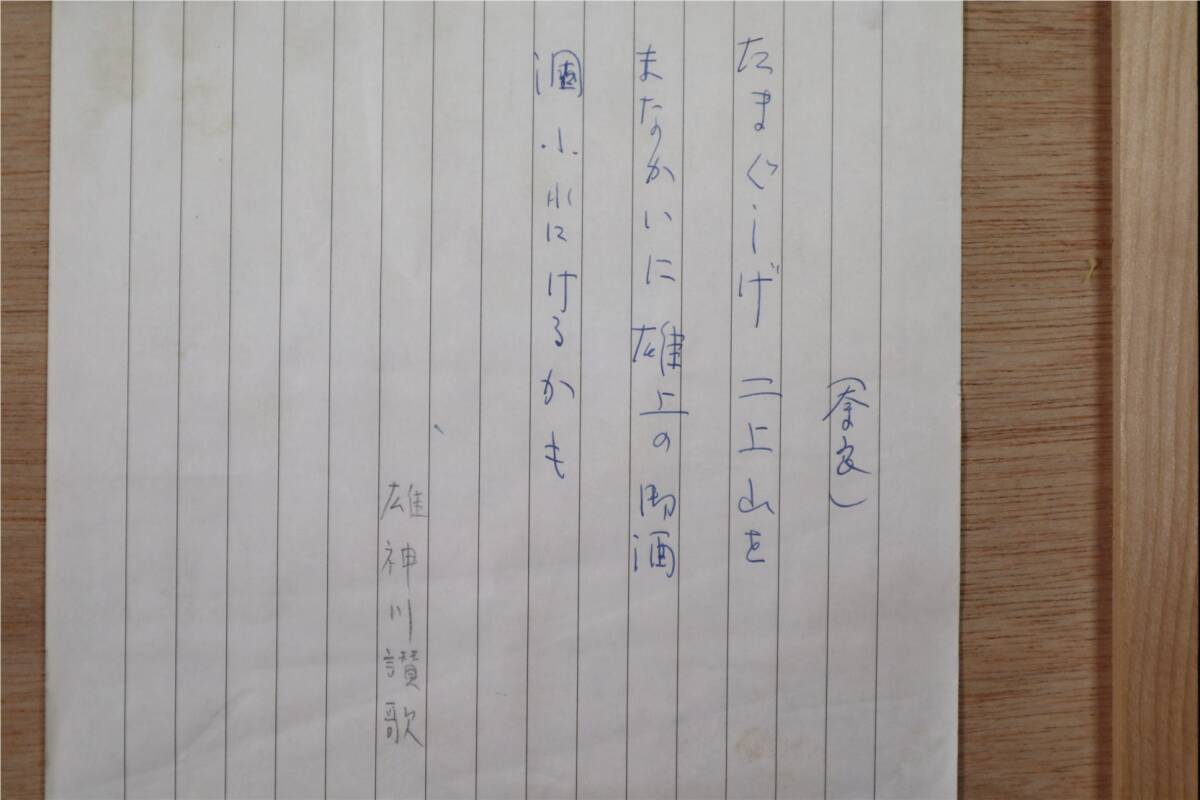 （奈良）
たまぐしげ 二上山を
まなかいに 雄上の御酒
涸小水にけるかも
雄神川讃歌